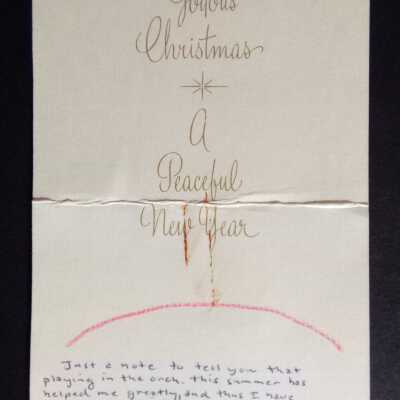 Joyous
Christmas
A
Peaceful
New Year
Just a note to tell you that
playing in the orch. this summer has
helped me greatly, and thus I have